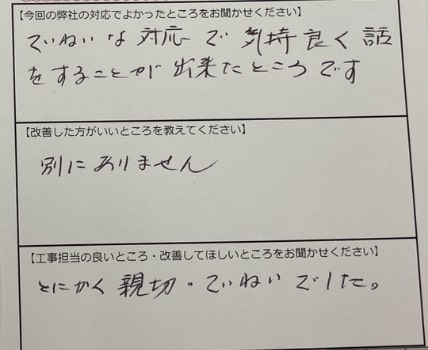 【今回の弊社の対応でよかったところをお聞かせください】
ていねいな対応で気持良く話
をすることが出来たところです
【改善した方がいいところを教えてください】
別にありません
【工事担当の良いところ・改善してほしいところをお聞かせください】
とにかく親切・ていねいでした。